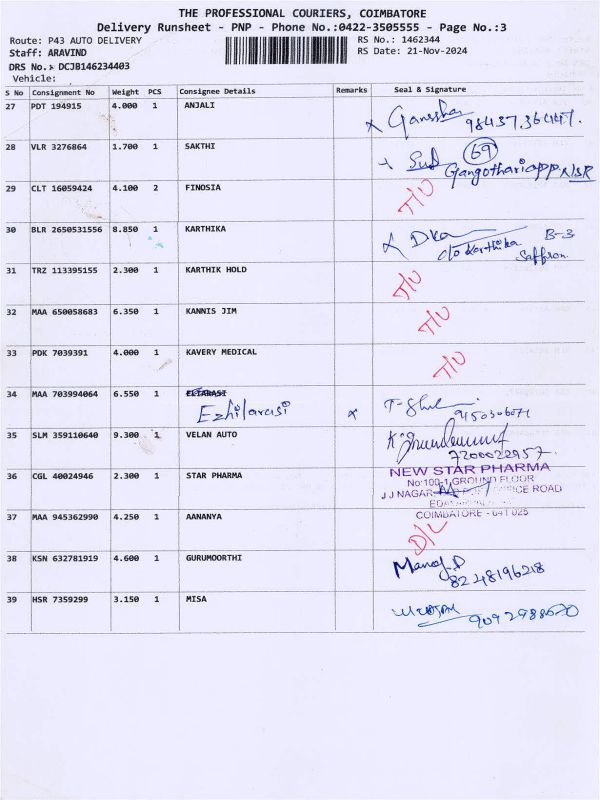 THE PROFESSIONAL COURIERS, COIMBATORE
Delivery Runsheet - PNP - Phone No.:0422-3505555 - Page No.:3
Route: P43 AUTO DELIVERY RS No.: 1462344
Staff: ARAVIND RS Date: 21-Nov-2024
DRS No.: DCJB146234403
Vehicle:
S No Consignment No Weight PCS Consignee Details Remarks Seal & Signature
27 PDT 194915 4.000 1 ANJALI
28 VLR 3276864 1.700 1 SAKTHI
69
29 CLT 16059424 4.100 2 FINOSIA T/U
30 BLR 2650531556 8.850 1 KARTHIKA B-3
c/o Karthika Saffron
31 TRZ 113395155 2.300 1 KARTHIK HOLD T/U
32 MAA 650058683 6.350 1 KANNIS JIM T/U
33 PDK 7039391 4.000 1 KAVERY MEDICAL T/U
34 MAA 703994064 6.550 1
Ezhilarasi x
35 SLM 359110640 9.300 1 VELAN AUTO
7200022957
36 CGL 40024946 2.300 1 STAR PHARMA NEW STAR PHARMA
No:100-1, GROUND FLOOR
J J NAGAR OFFICE ROAD
COIMBATORE - 641 025
37 MAA 945362990 4.250 1 AANANYA D/L
38 KSN 632781919 4.600 1 GURUMOORTHI Manoj.D
8248196218
39 HSR 7359299 3.150 1 MISA